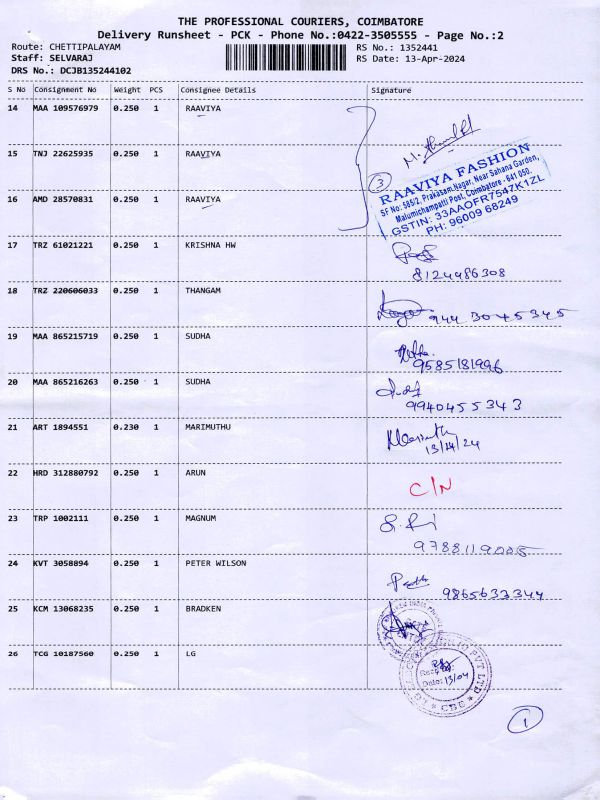 THE PROFESSIONAL COURIERS, COIMBATORE
Delivery Runsheet - PCK - Phone No.:0422-3505555 - Page No.:2
Route: CHETTIPALAYAM RS No.: 1352441
Staff: SELVARAJ RS Date: 13-Apr-2024
DRS No.: DCJB135244102
S No Consignment No Weight PCS Consignee Details Signature
14 MAA 109576979 0.250 1 RAAVIYA
15 TNJ 22625935 0.250 1 RAAVIYA
3
RAAVIYA FASHION
SF No: 585/2, Prakasam Nagar, Near Sahana Garden,
Malumichampatti Post, Coimbatore - 641 050.
GSTIN: 33AAOFR7547K1ZL
PH: 96009 68249
16 AMD 28570831 0.250 1 RAAVIYA
17 TRZ 61021221 0.250 1 KRISHNA HW
8124486308
18 TRZ 220606033 0.250 1 THANGAM
944 3045345
19 MAA 865215719 0.250 1 SUDHA
9585181996
20 MAA 865216263 0.250 1 SUDHA
9940455343
21 ART 1894551 0.230 1 MARIMUTHU
13/04/24
22 HRD 312880792 0.250 1 ARUN
C/N
23 TRP 1002111 0.250 1 MAGNUM
9788119005
24 KVT 3058894 0.250 1 PETER WILSON
9865633344
25 KCM 13068235 0.250 1 BRADKEN
26 TCG 10187560 0.250 1 LG
Date: 13/04
PVT LTD
CBE
1